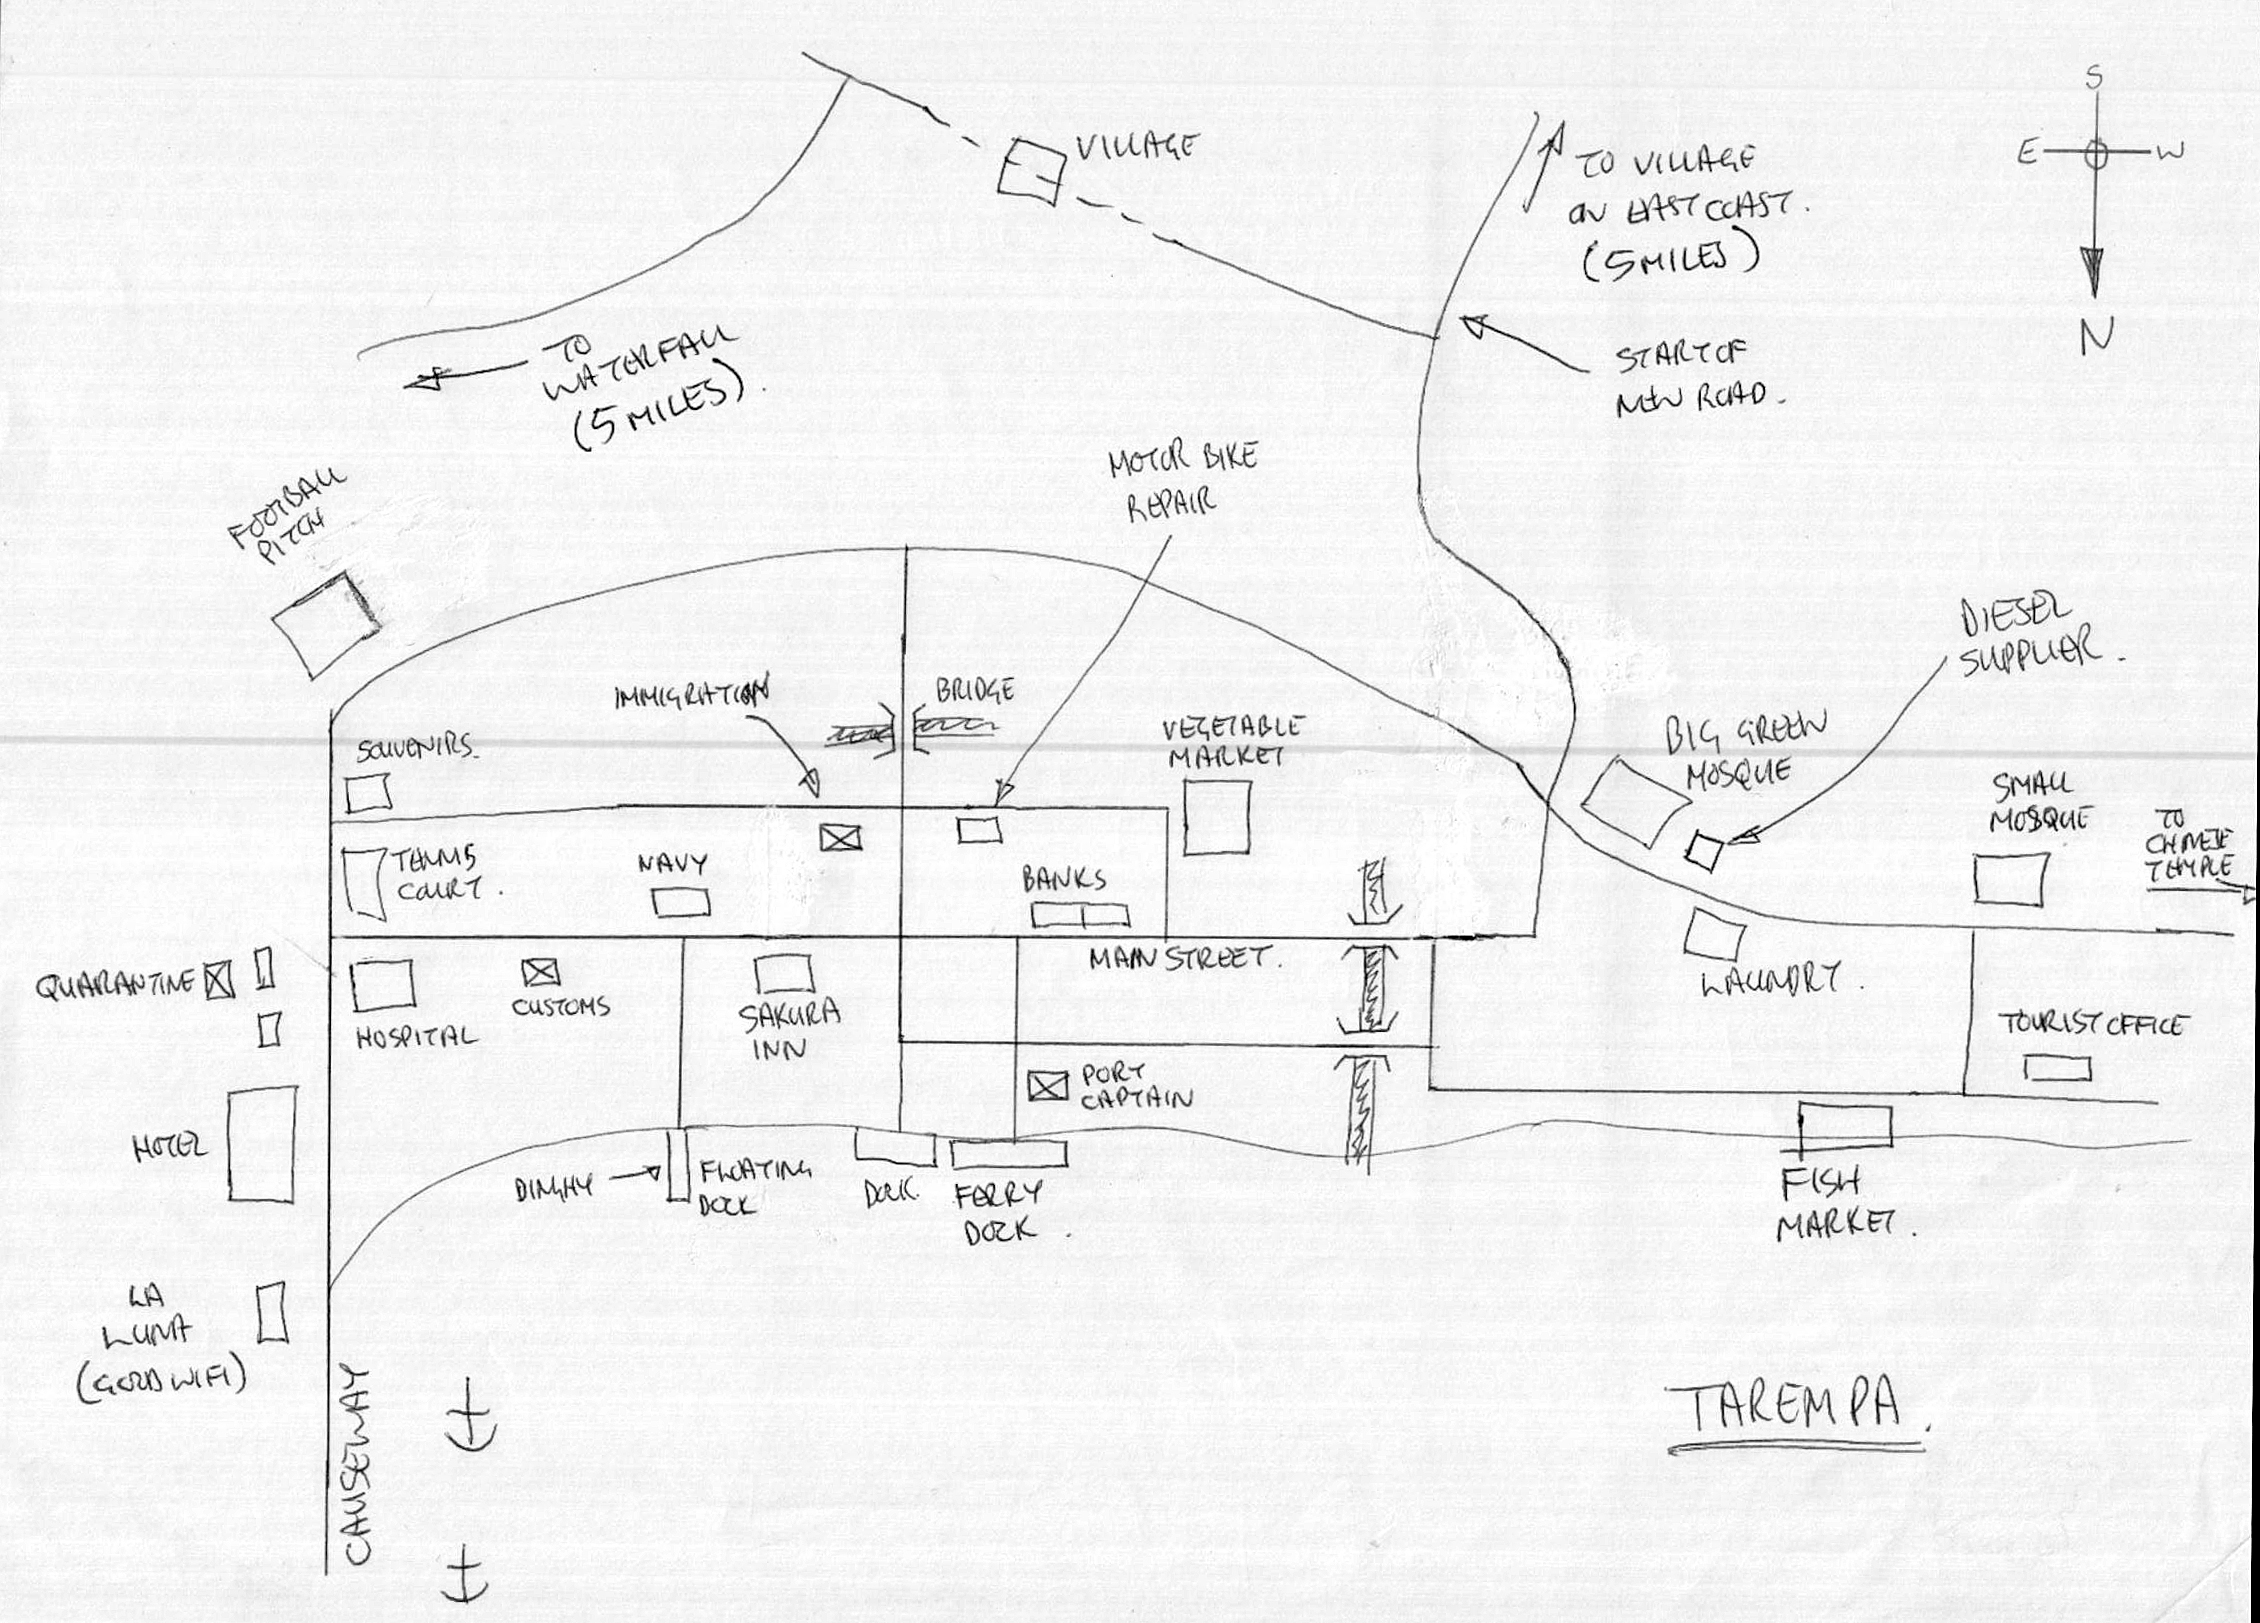 S
E
W
N
VILLAGE
TO VILLAGE
ON EAST COAST.
(5 MILES)
START OF
NEW ROAD.
TO
WATERFALL
(5 MILES).
MOTOR BIKE
REPAIR
FOOTBALL
PITCH
DIESEL
SUPPLIER.
IMMIGRATION
BRIDGE
VEGETABLE
MARKET
BIG GREEN
MOSQUE
SMALL
MOSQUE
TO
CHINESE
TEMPLE
SOUVENIRS.
TENNIS
COURT.
NAVY
BANKS
MAIN STREET.
QUARANTINE
HOSPITAL
CUSTOMS
SAKURA
INN
LAUNDRY.
TOURIST OFFICE
PORT
CAPTAIN
HOTEL
DINGHY
FLOATING
DOCK
DOCK.
FERRY
DOCK.
FISH
MARKET.
LA
LUNA
(GOOD WIFI)
CAUSEWAY
TAREMPA.